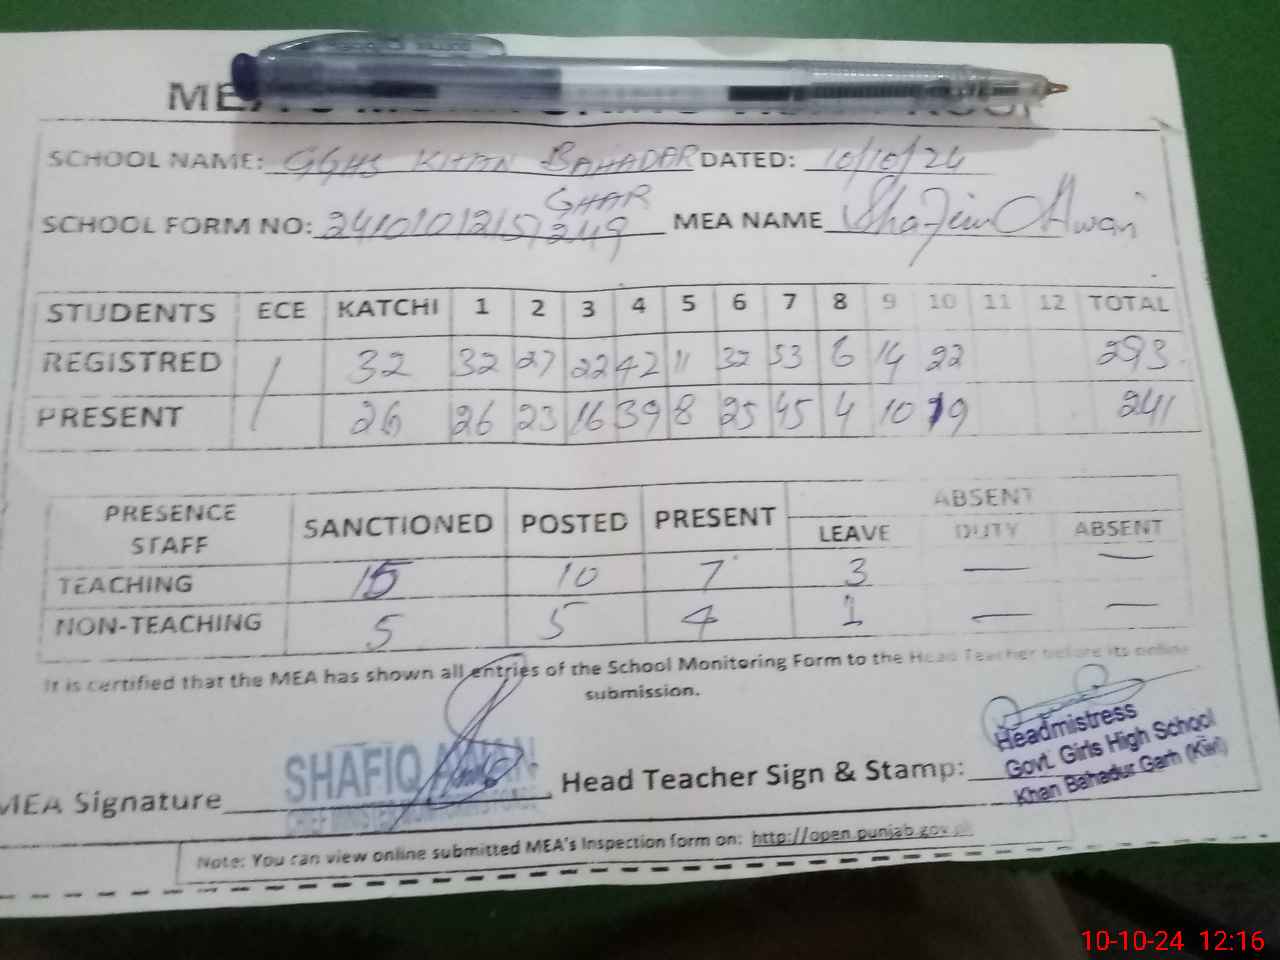 SCHOOL NAME: GGHS KHAN BAHADAR GHAR DATED: 10/10/24
SCHOOL FORM NO: MEA NAME Shafiq Awan
STUDENTS ECE KATCHI 1 2 3 4 5 6 7 8 9 10 11 12 TOTAL
REGISTRED / 32 32 27 22 42 11 32 53 6 14 22 293
PRESENT 26 26 23 16 39 8 25 45 4 10 19 241
PRESENCE STAFF SANCTIONED POSTED PRESENT ABSENT
LEAVE DUTY ABSENT
TEACHING 15 10 7 3 — —
NON-TEACHING 5 5 4 1 — —
It is certified that the MEA has shown all entries of the School Monitoring Form to the Head Teacher before its online
submission.
MEA Signature SHAFIQ AWAN Head Teacher Sign & Stamp: Headmistress
Govt. Girls High School
Khan Bahadur Garh (Kwl)
Note: You can view online submitted MEA's Inspection form on: http://open.punjab.gov.pk
10-10-24 12:16